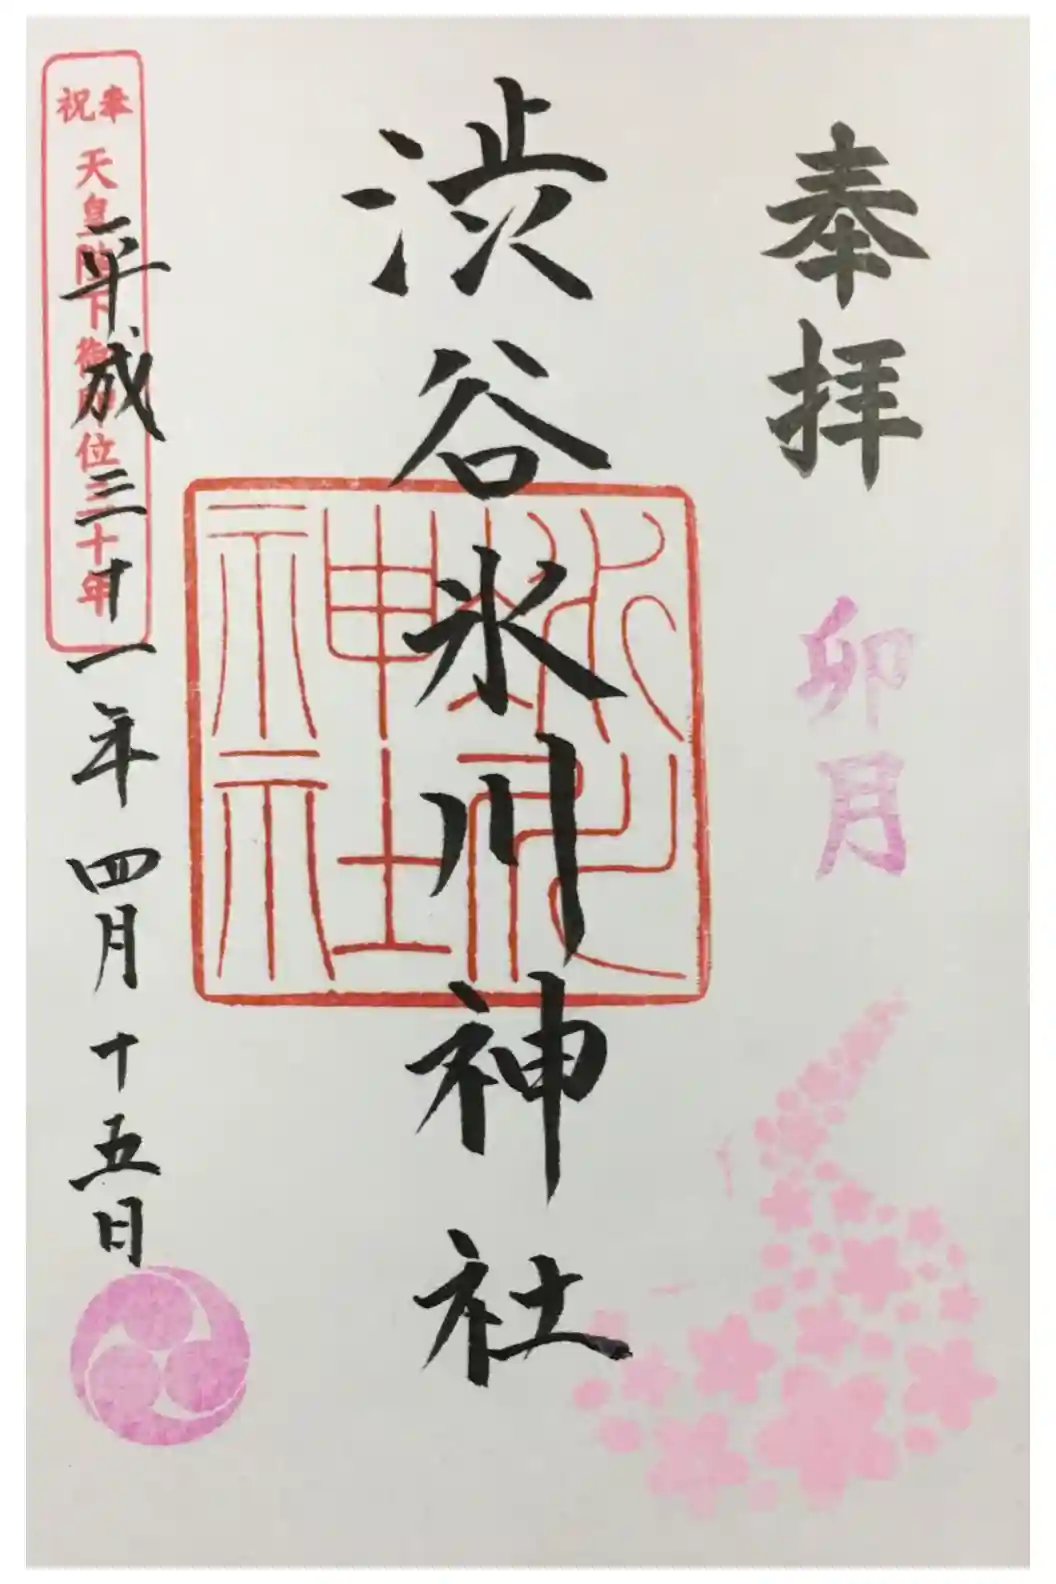 奉拝
卯月
渋谷氷川神社
氷川神社
平成三十一年四月十五日
奉祝
天皇陛下御即位三十年